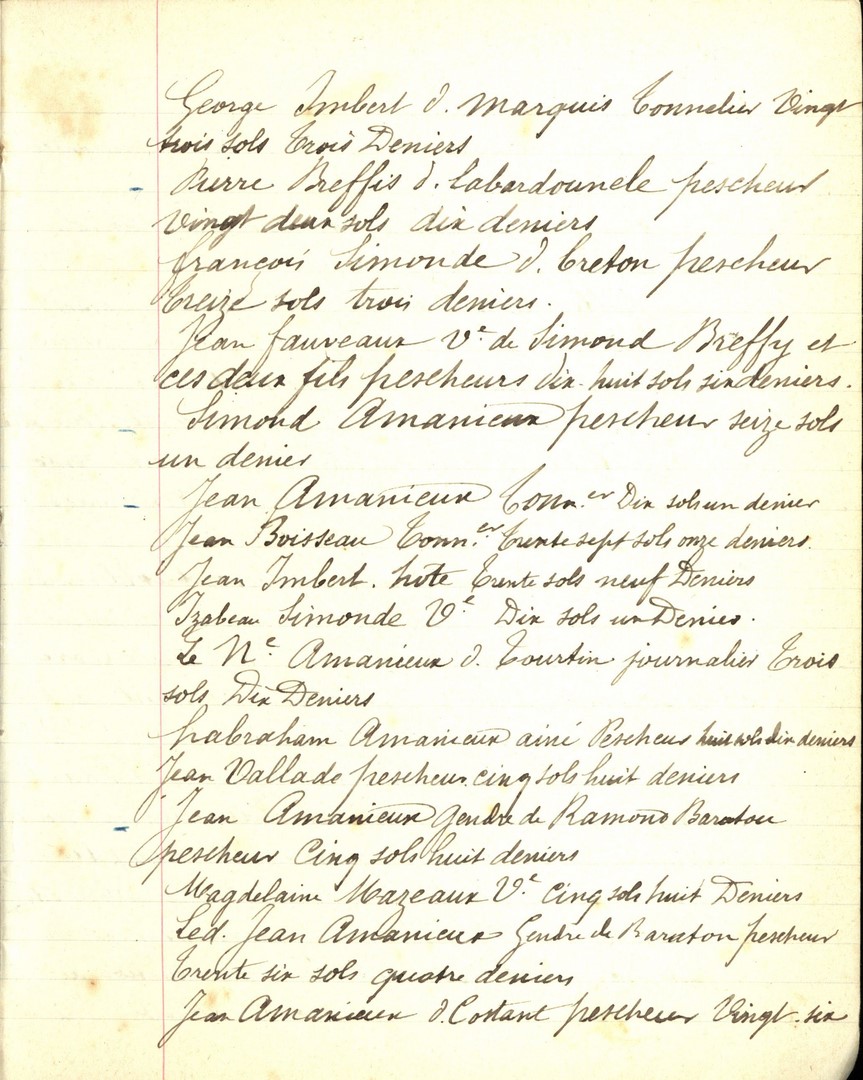 George Imbert d. marquis Tonnelier Vingt
trois sols Trois Deniers
Pierre Breffis d. Labardounele pescheur
vingt deux sols dix deniers
françois Simonde d. Creton pescheur
Treize sols trois deniers.
Jean fauveaux Ve de Simond Breffy et
ces deux fils pescheurs dix huit sols six deniers.
Simond Amanieux pescheur seize sols
un denier
Jean Amanieux Tonn.er Dix sols un denier
Jean Boisseau Tonn.er Trente sept sols onze deniers.
Jean Imbert. hote Trente sols neuf Deniers
Izabeau Simonde Ve Dix sols un Denier.
Le Ne Amanieux d. Tourtin journalier Trois
sols Dix Deniers
habraham Amanieux ainé Pescheur huit sols dix deniers
Jean Vallade pescheur cinq sols huit deniers
Jean Amanieux Gendre de Ramond Baraton
pescheur Cinq sols huit deniers
Magdelaine Mazeaux Ve Cinq sols huit Deniers
Led. Jean Amanieux Gendre de Baraton pescheur
Trente six sols quatre deniers
Jean Amanieux d. Costant pescheur Vingt-six